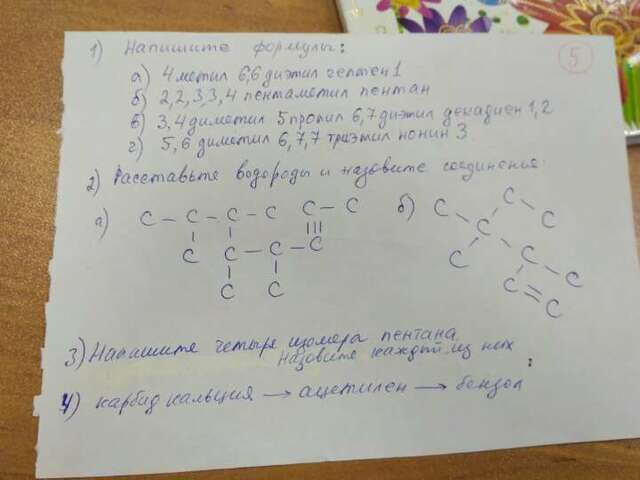 5
1) Напишите формулы:
а) 4 метил 6,6 диэтил гептен 1
б) 2,2,3,3,4 пентаметил пентан
в) 3,4 диметил 5 пропил 6,7 диэтил декадиен 1,2
г) 5,6 диметил 6,7,7 триэтил нонин 3.
2) Расставьте водороды и назовите соединенье.
а) C – C – C – C C – C б) C C C
C C – C – C C C C
C C C = C
3) Напишите четыре изомера пентана.
Назовите каждый из них
4) карбид кальция → ацетилен → бензол :